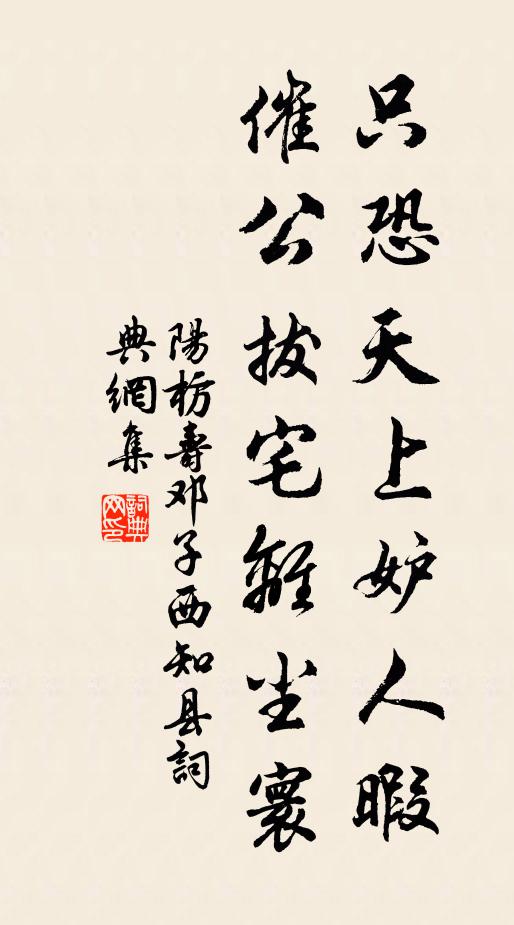 只恐天上妒人暇
催公拔宅離尘寰
陽枋壽邓子西知县詞
典網集
詞典网印